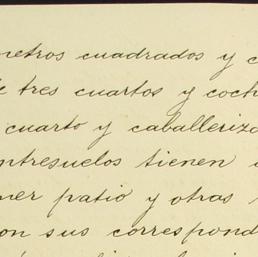 metros cuadrados y c
e tres cuartos y coch
cuarto y caballeriza
ntresuelos tienen
mer patio y otras
on sus correspond